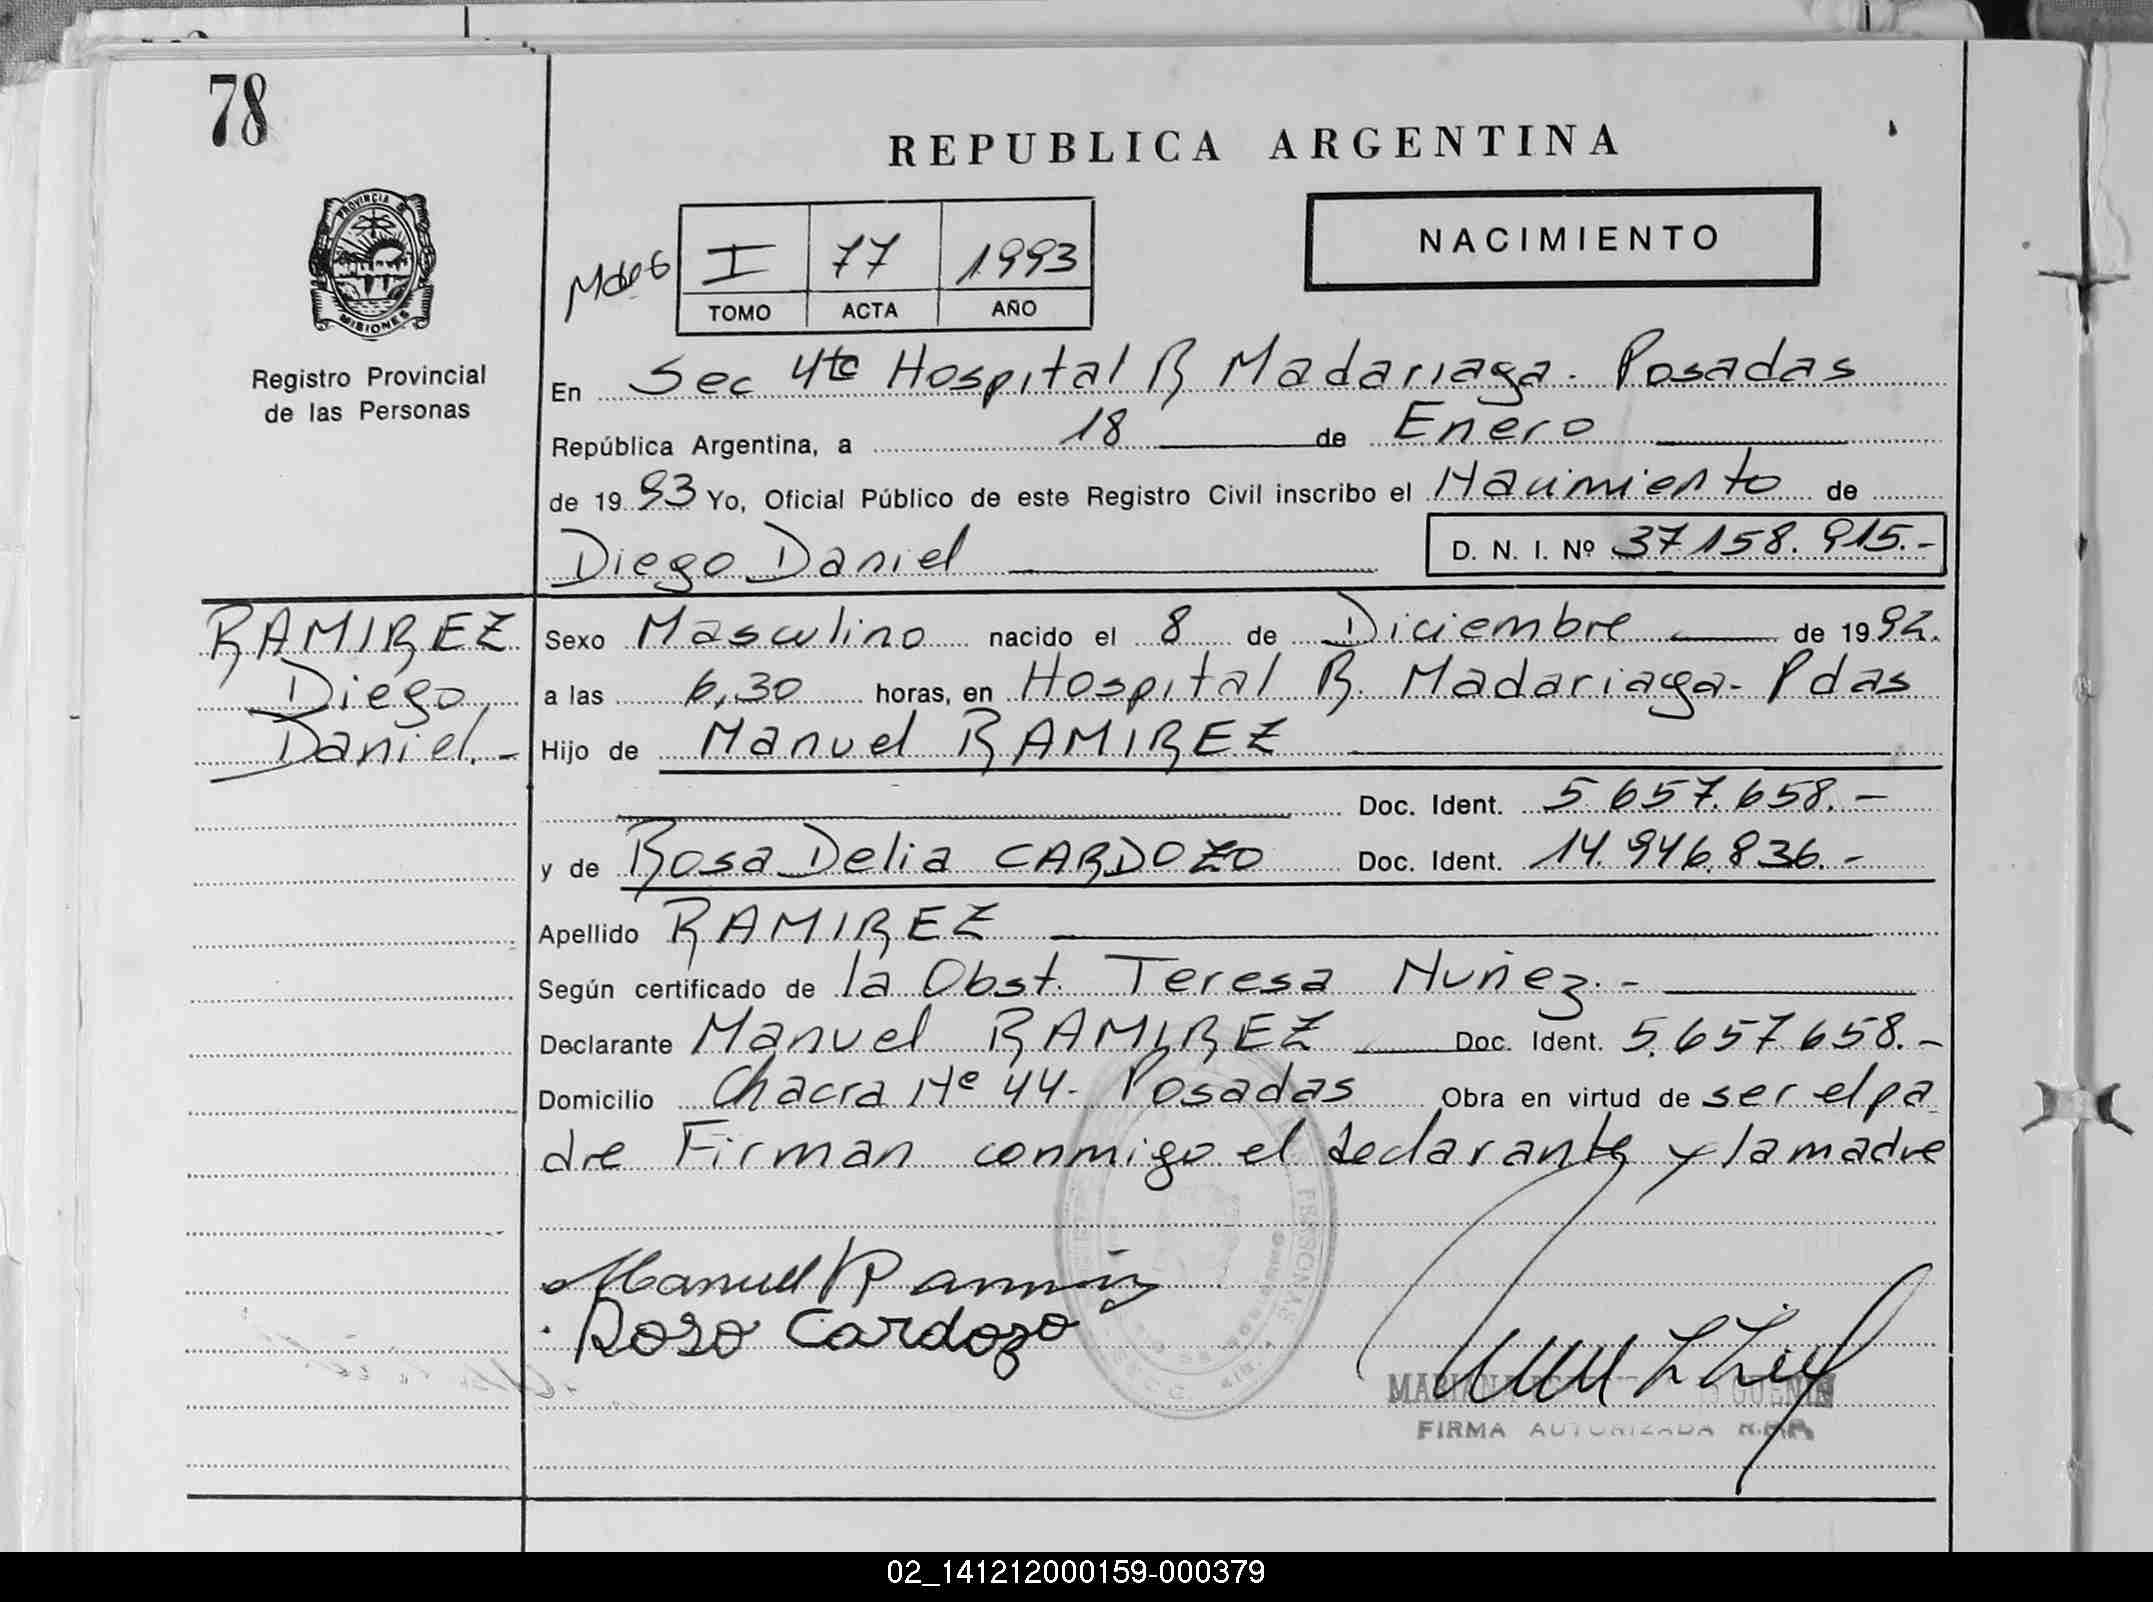 78
REPUBLICA ARGENTINA
NACIMIENTO
PROVINCIA DE
MISIONES
Registro Provincial
de las Personas
I 77 1993
TOMO ACTA AÑO
En Sec 4ta Hospital R Madariaga. Posadas
República Argentina, a 18 de Enero
de 1993 Yo, Oficial Público de este Registro Civil inscribo el Nacimiento de
Diego Daniel D. N. I. Nº 37.158.915.-
RAMIREZ
Diego
Daniel.-
Sexo Masculino nacido el 8 de Diciembre de 1992.
a las 6,30 horas, en Hospital R. Madariaga- Pdas
Hijo de Manuel RAMIREZ
Doc. Ident. 5.657.658.-
y de Rosa Delia CARDOZO Doc. Ident. 14.946.836.-
Apellido RAMIREZ
Según certificado de la Obst. Teresa Nuñez.-
Declarante Manuel RAMIREZ Doc. Ident. 5.657.658.-
Domicilio Chacra Nº 44- Posadas Obra en virtud de ser el pa
dre Firman conmigo el declarante y la madre
Manuel Ramirez
Rosa Cardozo
MARIANA
FIRMA AUTORIZADA R.P.P.
02_141212000159-000379